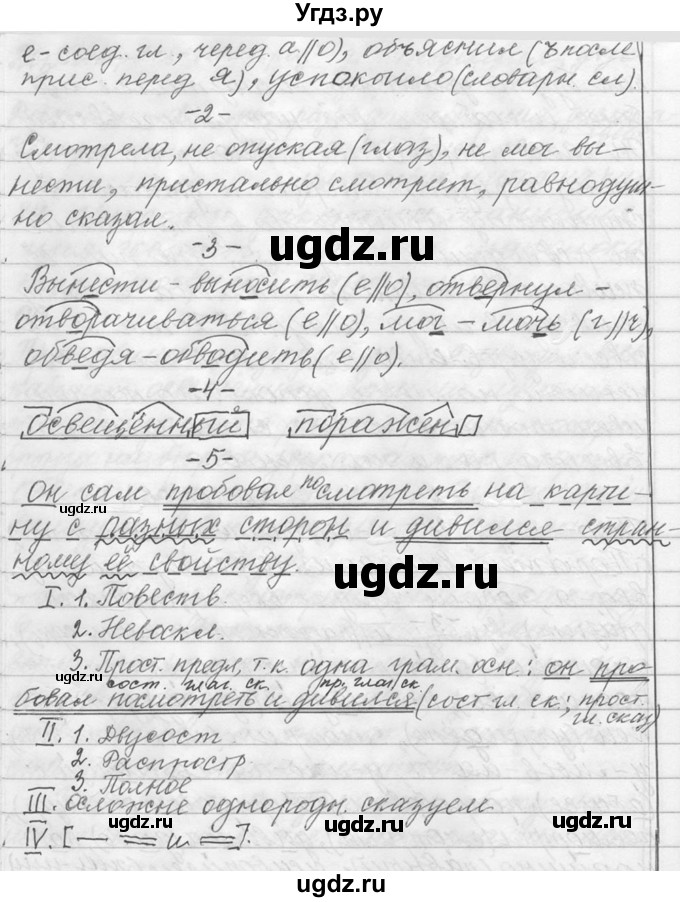 Угдз.ру
е-соед. гл, черед. а//о), объяснил (ъ после
прис. перед я), успокоило (словарн. сл).
-2-
Смотрела, не опуская (глаз), не мог вы-
нести, пристально смотрит, равнодуш-
но сказал.
-3-
ugdz.ru
Вынести - выносить (е//о), отвернул -
отворачиваться (е//о), мог - мочь (г//ч),
обведя - обводить (е//о).
-4-
освещённый поражен
-5-
Он сам пробовал посмотреть на карти-
ну с разных сторон и дивился стран-
ному её свойству.
ugdz.ru
I. 1. Повеств.
2. Невоскл.
3. Прост. предл, т.к. одна грам. осн: он про-
сост. глаг. ск. пр. глаг ск
бовал памотреть и дивился (сост гл. ск.; прост.
гл. сказ)
II. 1. Двусост.
2. Распростр.
3. Полное
III. осложне однородн. сказуем.
ugdz.ru ugdz.ru ugdz.ru
IV. [— = и =].
ugdz.ru